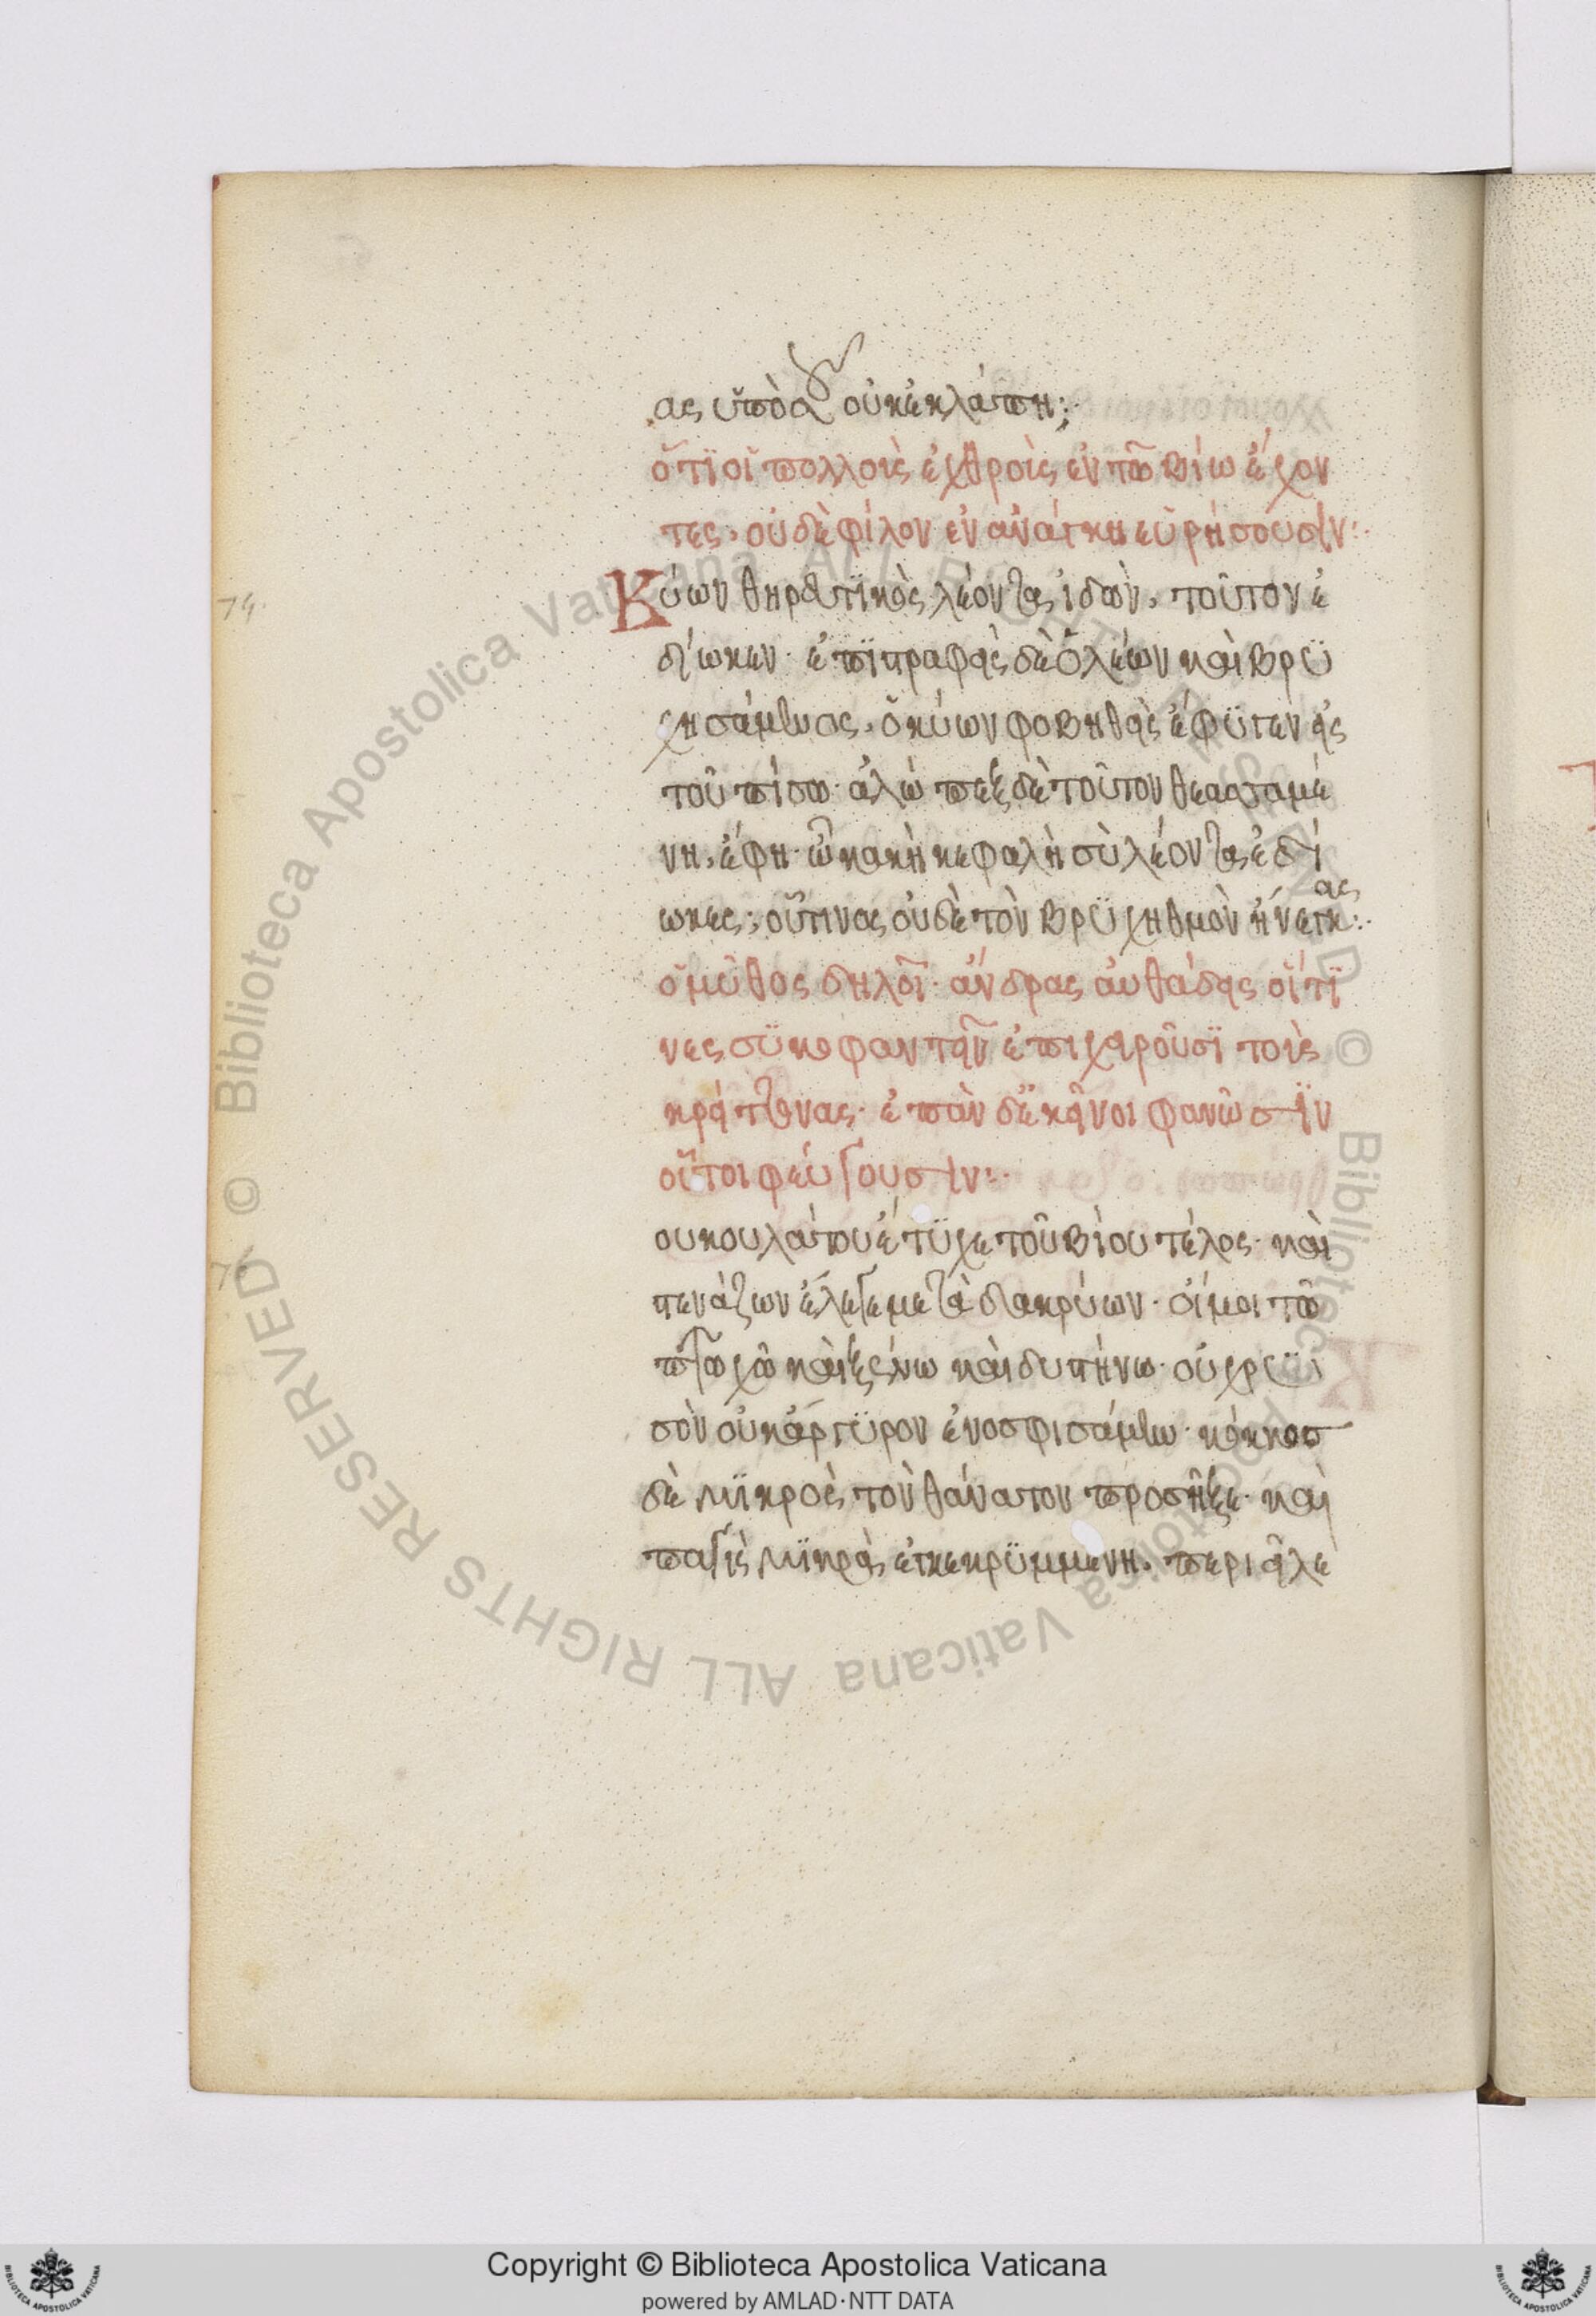 ας ὑπὸ δ οὐκ ἐκλάπη;
ὅτι οἱ πολλοὶς ἐχθροὶς ἐν τῶ βίω ἔχον
τες, οὐδὲ φίλον ἐν ἀνάγκη εὑρήσουσιν:
Κύων θηρατικὸς λέοντας ἰδὼν, τοῦτον ἐ
δίωκεν· ἐπιστραφεὶς δὲ ὁ λέων καὶ βρυ
χησάμενος, ὁ κύων φοβηθεὶς ἔφυγεν εἰς
τοῦπίσω· ἀλώπεξ δὲ τοῦτον θεασαμέ
νη, ἔφη· ὦ κακὴ κεφαλὴ σὺ λέοντας ἐδί
ωκες; οὕτινας οὐδὲ τὸν βρυχηθμὸν ἤνεγκας:
ὁ μῦθος δηλοῖ· ἄνδρας αὐθάδεις οἵτι
νες συκοφαντεῖν ἐπιχειροῦσι τοὶς
κρείττονας· ἐπὰν δὲ κεῖνοι φανῶσιν
οὗτοι φεύγουσιν:
ου κουλάπου ἔτυχε τοῦ βίου τέλος· καὶ
στενάζων ἔλεγε μετὰ δακρύων· οἴμοι τῶ
πτωχῶ καὶ ξένω καὶ δυστήνω· οὐ χρυ
σὸν οὐκ ἄργυρον ἐνοσφισάμην· κόκκος
δὲ μικρὸς τὸν θάνατον προσῆξε· καὶ
παγὶς μικρὰ ἐγκεκρυμμένη, περιεῖλε
Copyright © Biblioteca Apostolica Vaticana
powered by AMLAD·NTT DATA